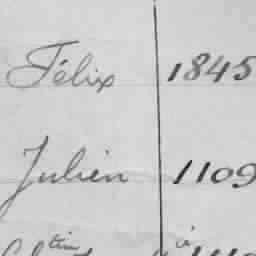 Félix 1845
Julien 1109